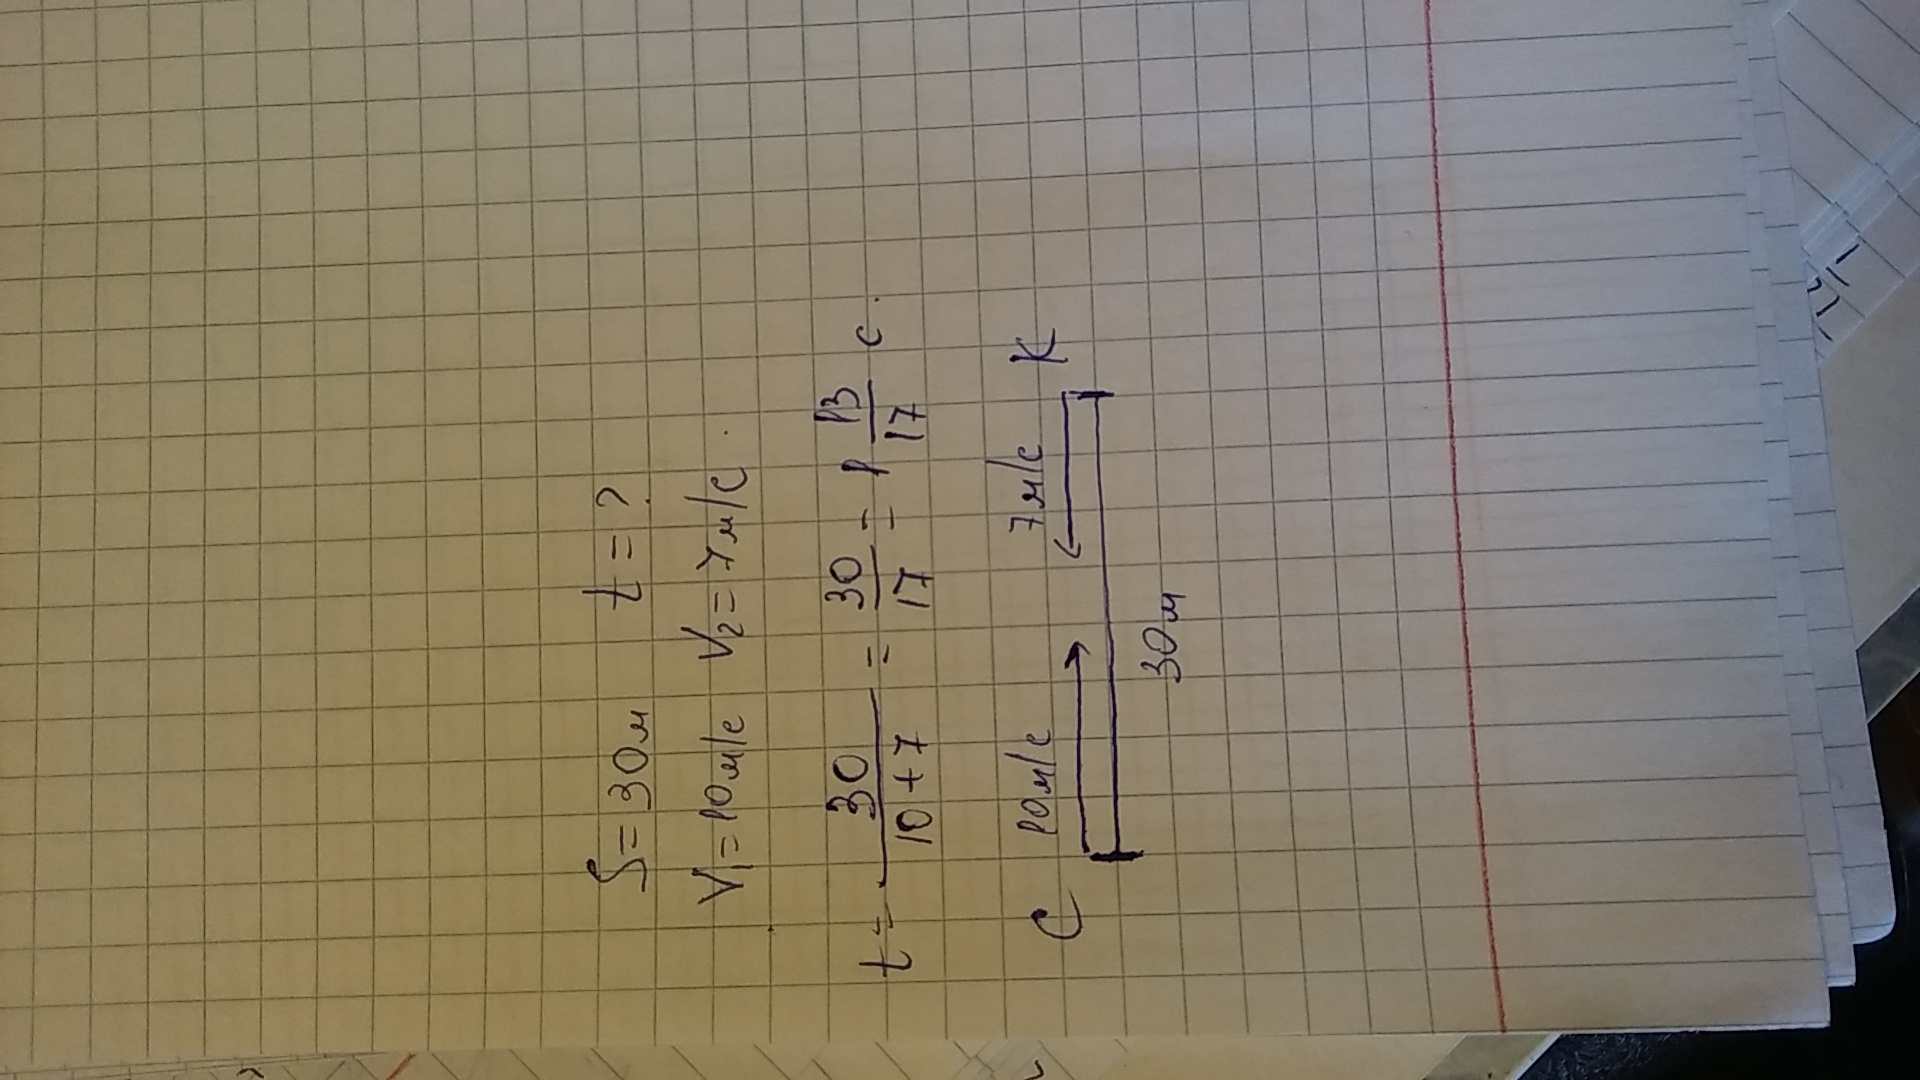 S = 30м t = ?
V₁ = 10м/с V₂ = 7м/с.
t = 30/(10+7) = 30/17 = 1 13/17 с.
С 10м/с 7м/с К
30м